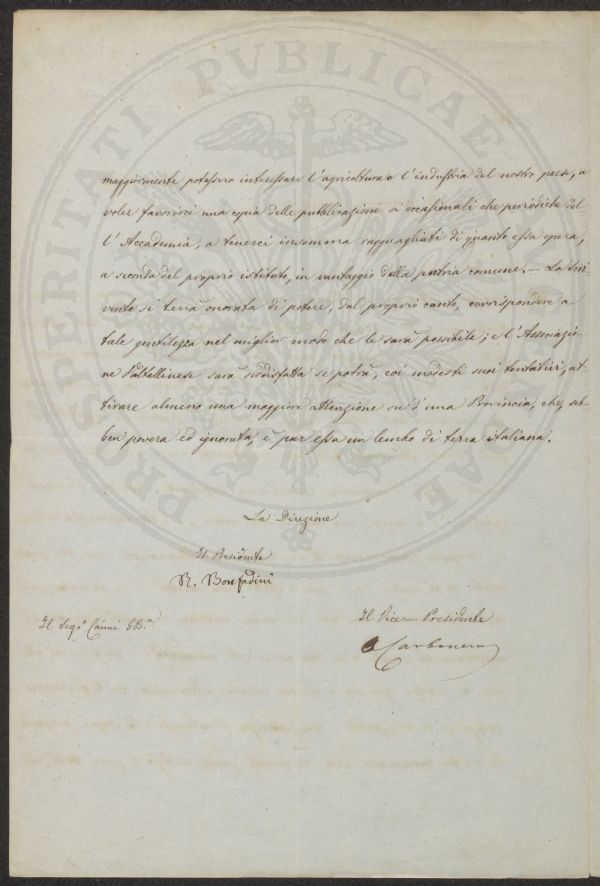 PROSPERITATI PVBLICAE AVGENDAE
maggiormente potessero interessare l'agricoltura o l'industria del nostro paese, a
voler favorirci una copia delle pubblicazioni sì occasionali che periodiche del
l'Accademia, a tenerci insomma ragguagliati di quanto essa opera,
a seconda del proprio istituto, in vantaggio della patria comune. — La scri
vente si terrà onorata di potere, dal proprio canto, corrispondere a
tale gentilezza nel miglior modo che le sarà possibile; e l'Associazio-
ne Valtellinese sarà soddisfatta se potrà, coi modesti suoi tentativi, at
tirare almeno una maggiore attenzione su d'una Provincia, che, seb
ben povera ed ignorata, è pur essa un lembo di terra italiana.
La Direzione
Il Presidente
R. Bonfadini
Il Segr.o Caimi GB.a
Il Vice-Presidente
Carbonera